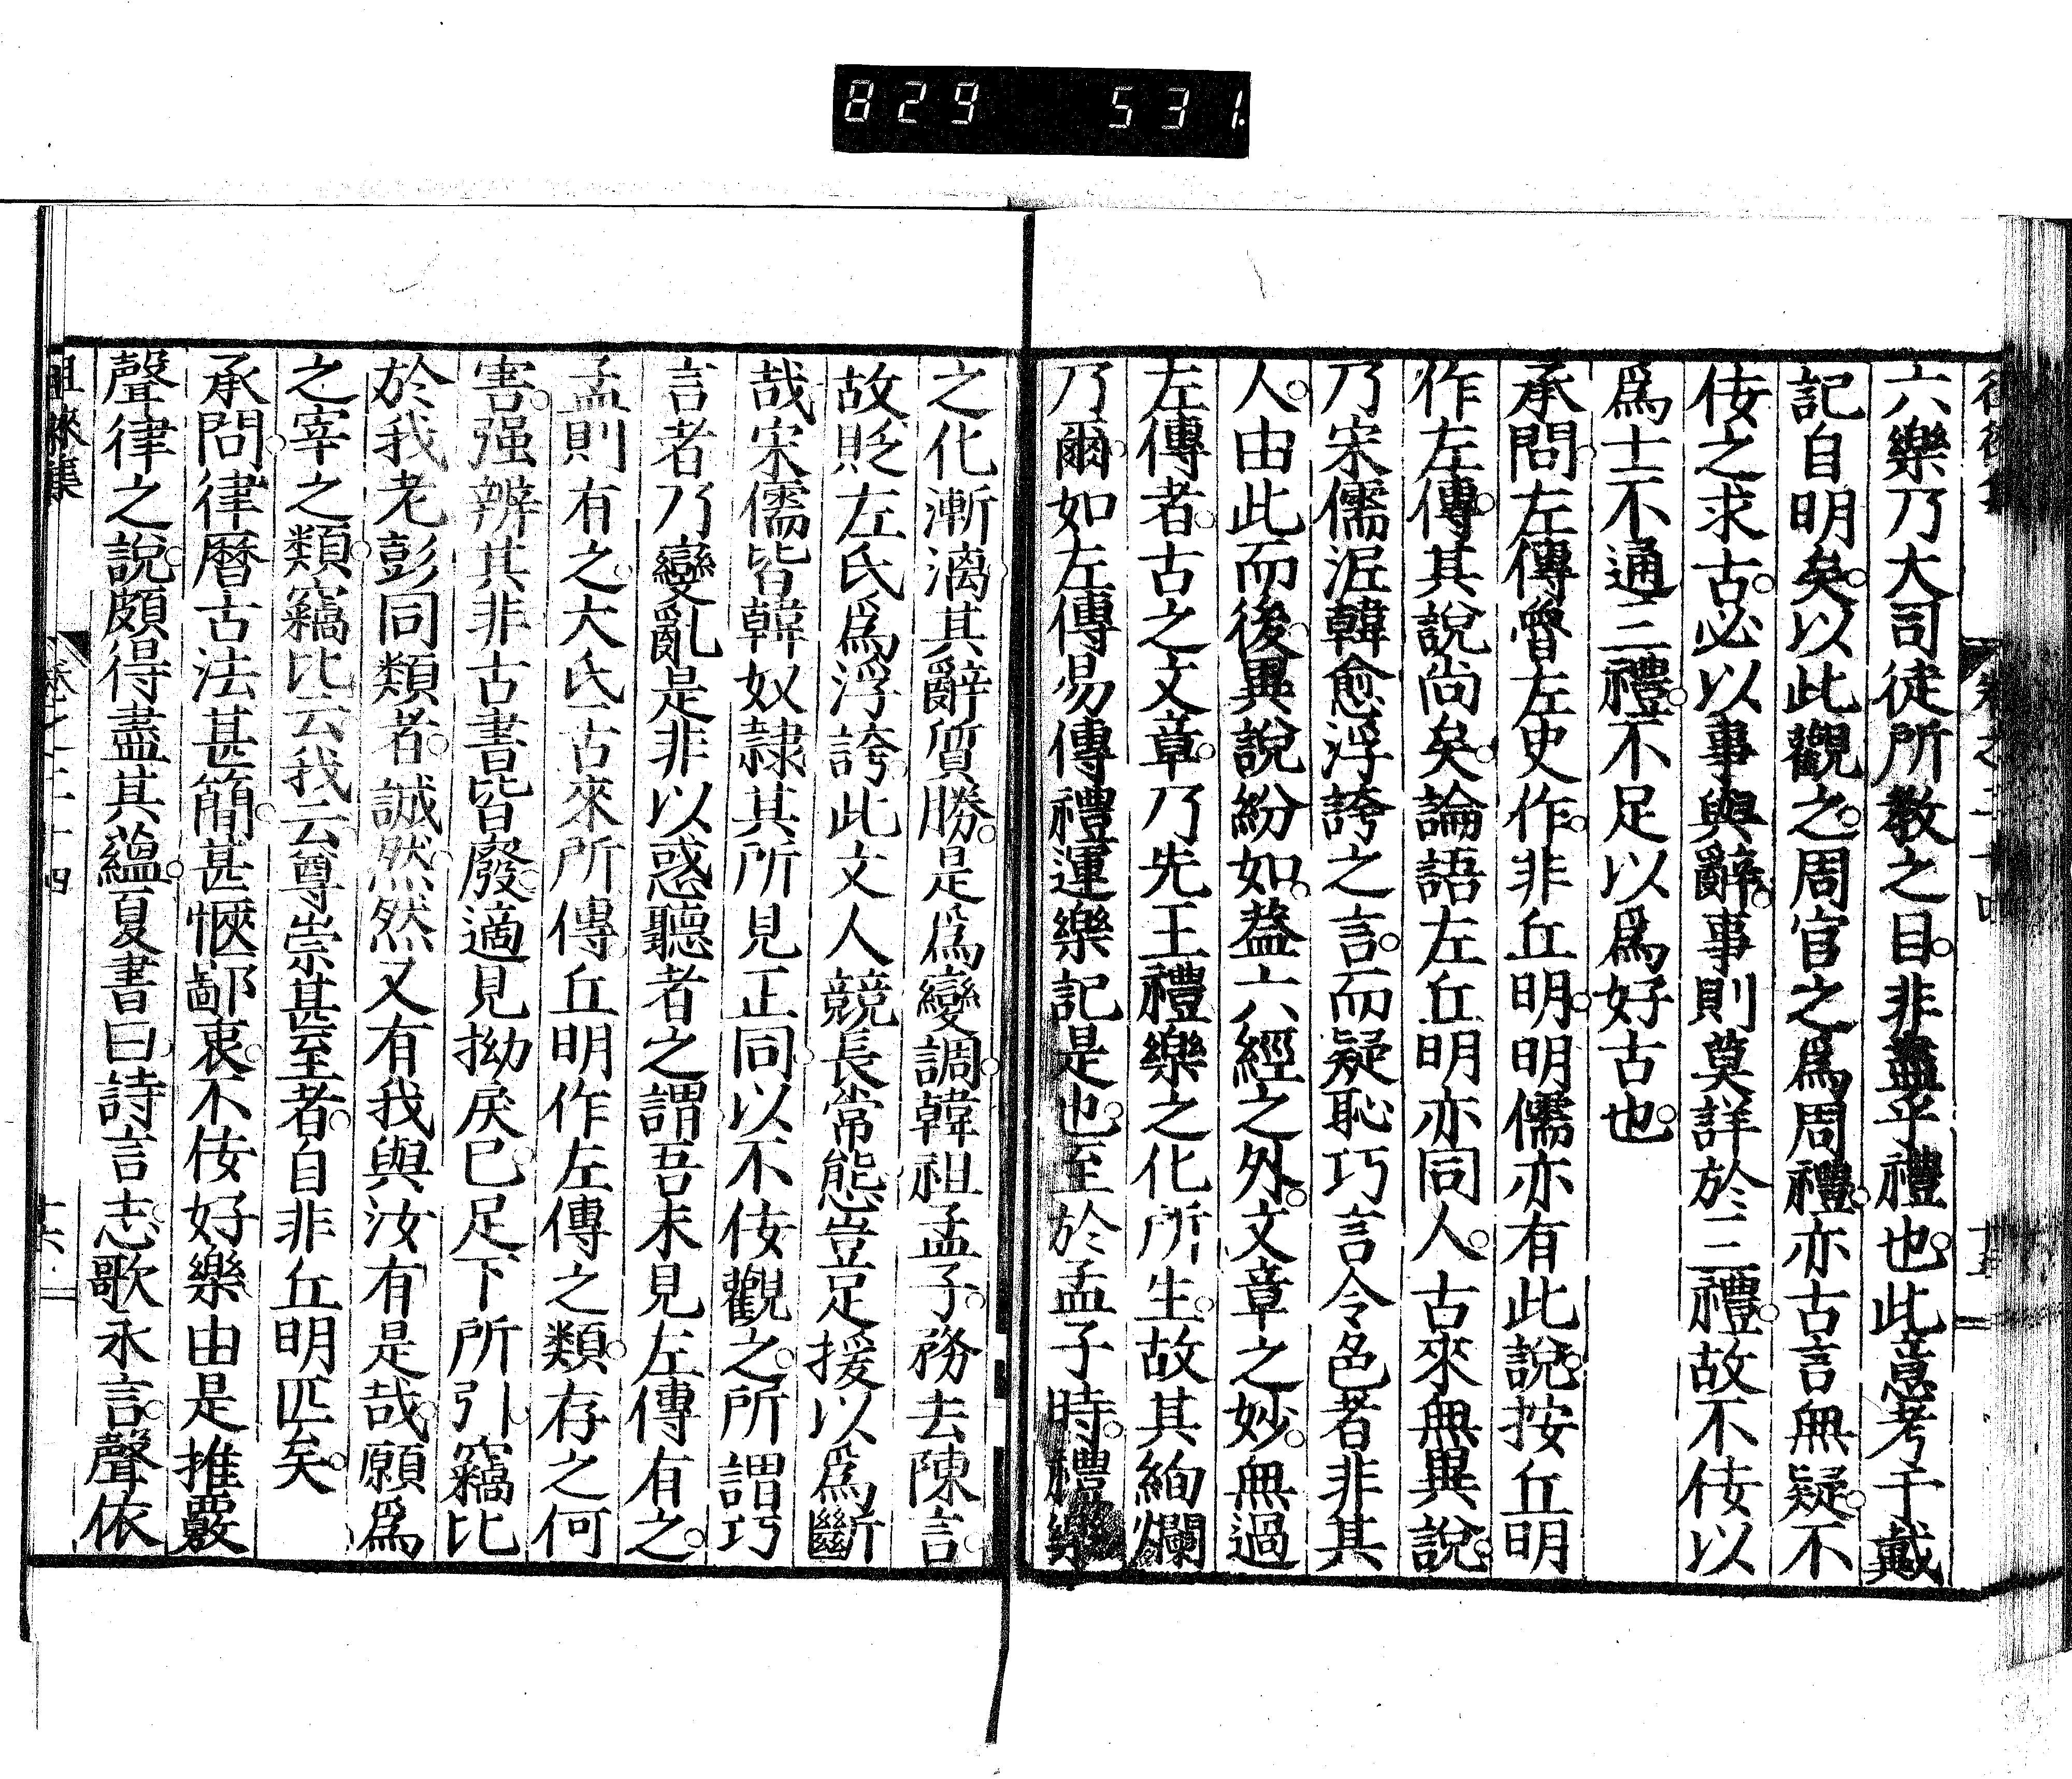 829 531.
六樂乃大司徒所教之目。非盡乎禮也。此意考于戴
記自明矣。以此觀之。周官之爲周禮。亦古言無疑。不
佞之求古。必以事與辭。事則莫詳於三禮。故不佞以
爲士不通三禮。不足以爲好古也。
承問。左傳。魯左史作。非丘明。明儒亦有此說。按丘明
作左傳。其說尚矣。論語左丘明亦同人。古來無異說。
乃宋儒泥韓愈浮誇之言。而疑恥巧言令色者非其
人。由此而後。異說紛如。蓋六經之外。文章之妙。無過
左傳者。古之文章。乃先王禮樂之化所生。故其絢爛
乃爾。如左傳易傳禮運樂記是也。至於孟子時。禮樂
之化漸漓。其辭質勝。是爲變調。韓祖孟子。務去陳言。
故貶左氏爲浮誇。此文人競長常態。豈足援以爲斷
哉。宋儒皆韓奴隸。其所見正同。以不佞觀之。所謂巧
言者。乃變亂是非以惑聽者之謂。吾未見左傳有之。
孟則有之。大氐古來所傳。丘明作左傳之類。存之何
害。强辨其非。古書皆廢。適見拗戾已。足下所引。竊比
於我老彭同類者。誠然。然又有我與汝有是哉。願爲
之宰之類。竊比云。我云。尊崇甚至者。自非丘明匹矣。
承問。律曆古法甚簡。甚愜鄙衷。不佞好樂。由是推覈
聲律之說。頗得盡其蘊。夏書曰。詩言志。歌永言。聲依
徂徠集 卷之二十四 十六